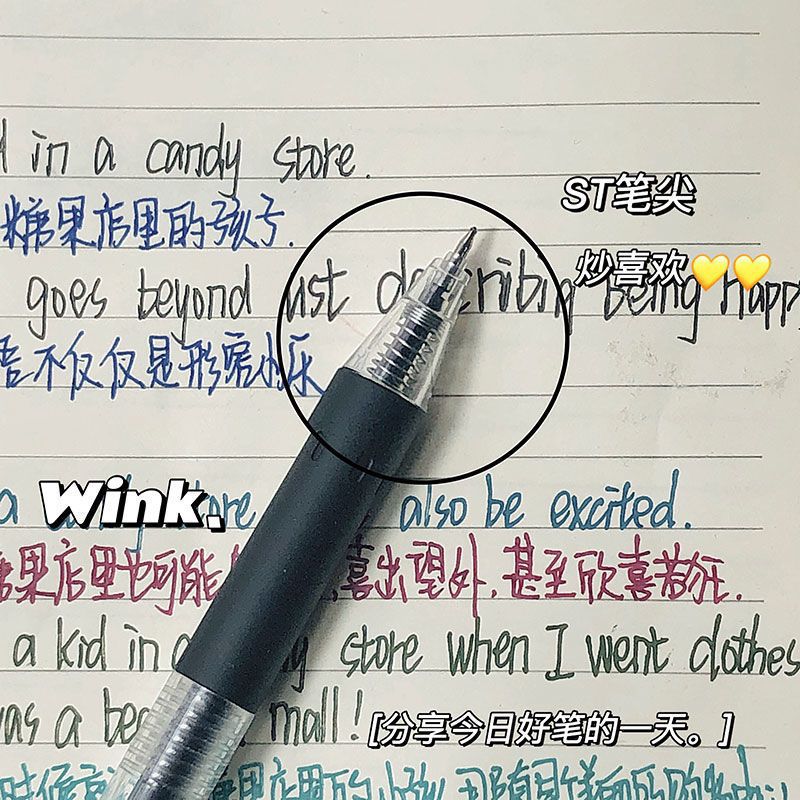 in a candy store.
ST笔尖
糖果店里的孩子.
炒喜欢💛💛
goes beyond just describing being happy
不仅仅是形容快乐
Wink.
a also be excited.
糖果店里也可能 喜出望外,甚至欣喜若狂.
a kid in a store when I went clothes
was a mall!
[分享今日好笔的一天。]
时候